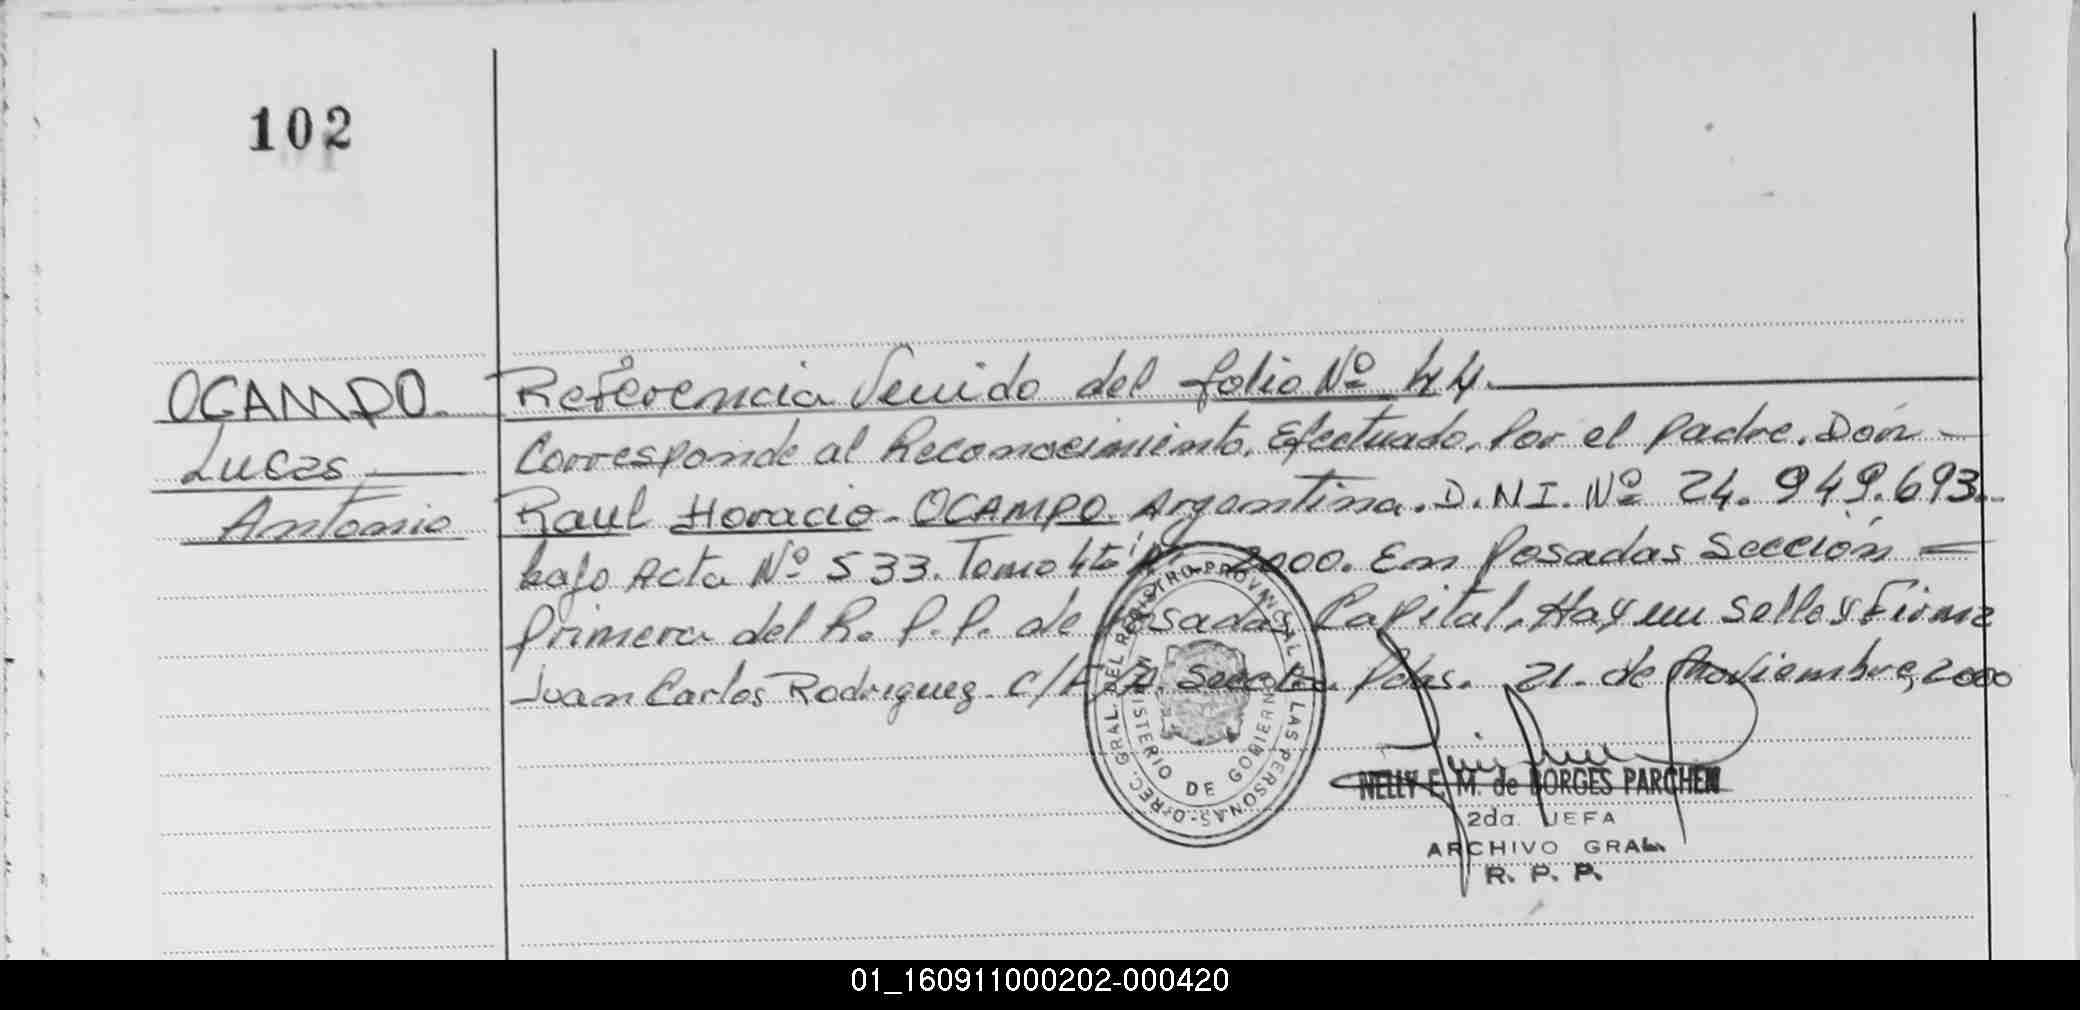 102
OCAMPO.
Lucas
Antonio
Referencia Venido del folio Nº 44.
Corresponde al Reconocimiento. Efectuado. Por el Padre. Don
Raul Horacio - OCAMPO. Argentina. D.N.I. Nº 24.949.693.
bajo Acta Nº 533. Tomo 4to 2000. En Posadas Sección
Primera del R. P.P. de Posadas Capital. Hay un Sello y Firma
Juan Carlos Rodriguez. Pdas. 21. de Noviembre, 2000
REC. GRAL. DEL REGISTRO PROVINCIAL DE LAS PERSONAS
MINISTERIO DE GOBIERNO
NELLY E. M. de BORGES PARCHEN
2da. JEFA
ARCHIVO GRAL.
R. P. P.
01_160911000202-000420